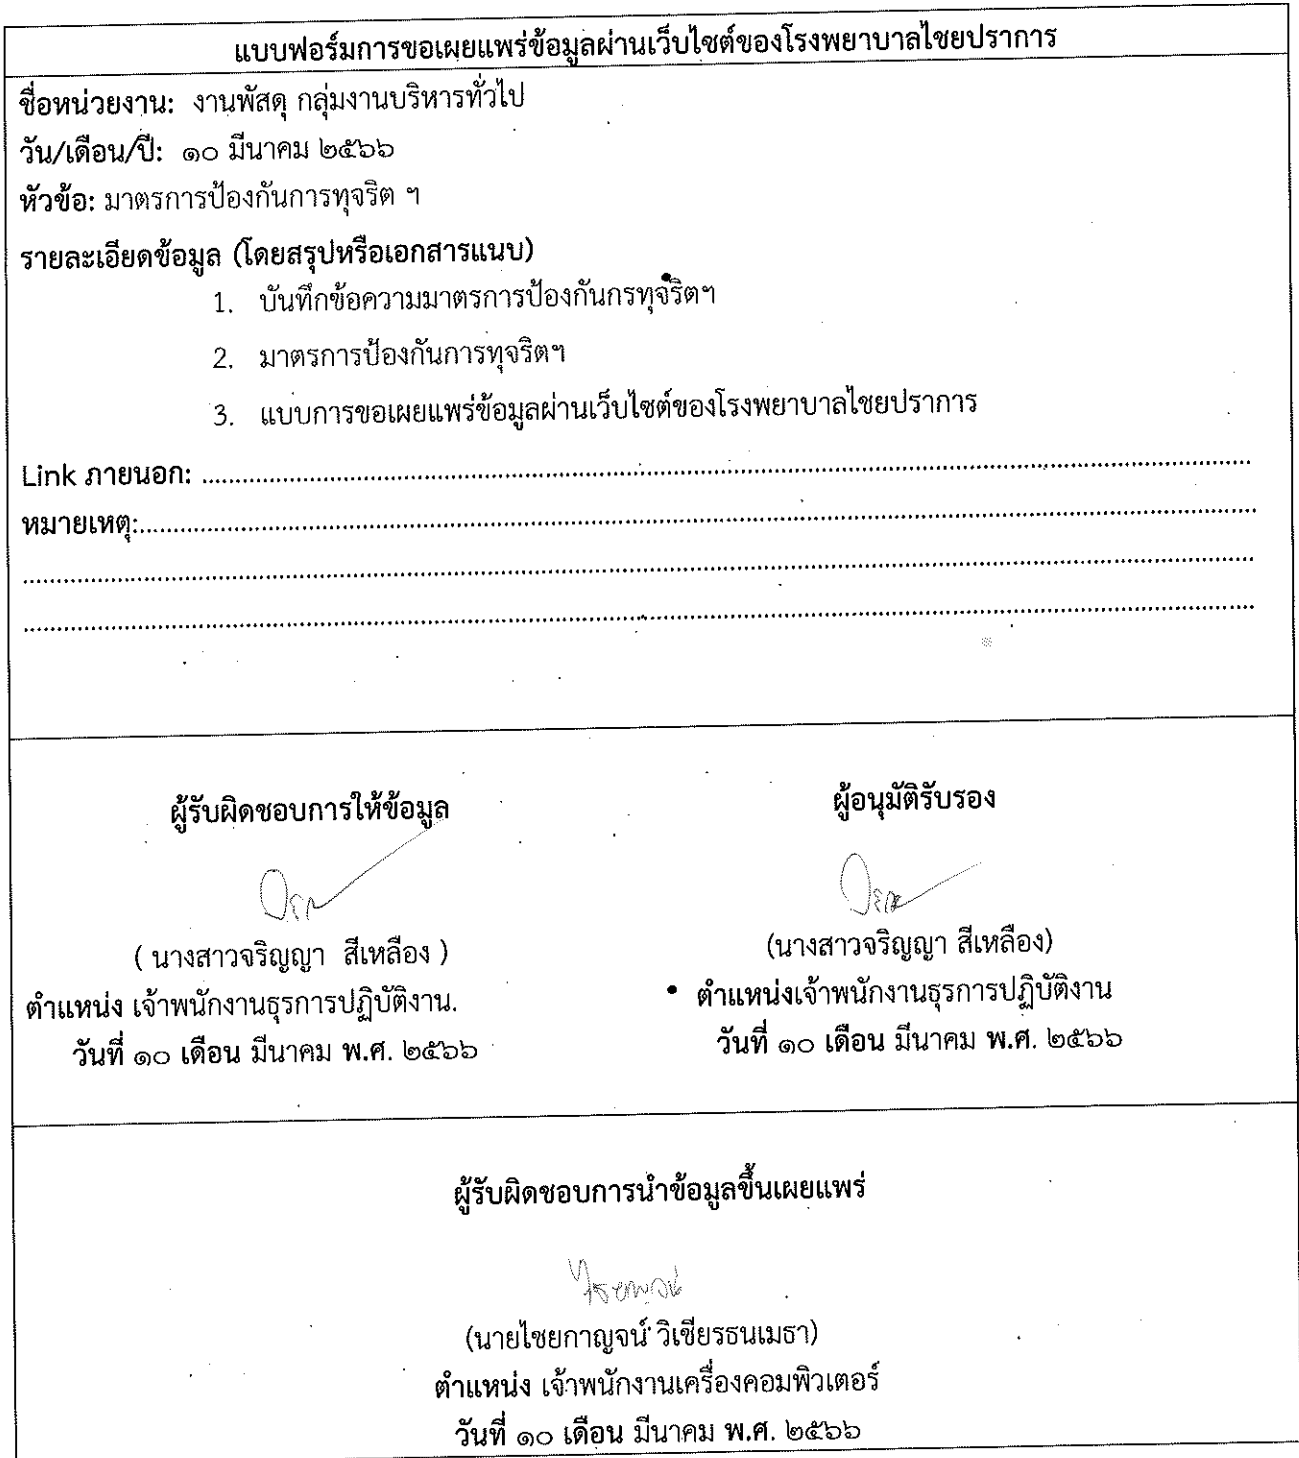 แบบฟอร์มการขอเผยแพร่ข้อมูลผ่านเว็บไซต์ของโรงพยาบาลไชยปราการ
ชื่อหน่วยงาน: งานพัสดุ กลุ่มงานบริหารทั่วไป
วัน/เดือน/ปี: ๑๐ มีนาคม ๒๕๖๖
หัวข้อ: มาตรการป้องกันการทุจริต ฯ
รายละเอียดข้อมูล (โดยสรุปหรือเอกสารแนบ)
1. บันทึกข้อความมาตรการป้องกันกรทุจริตฯ
2. มาตรการป้องกันการทุจริตฯ
3. แบบการขอเผยแพร่ข้อมูลผ่านเว็บไซต์ของโรงพยาบาลไชยปราการ
Link ภายนอก: ..........
หมายเหตุ:..........
ผู้รับผิดชอบการให้ข้อมูล
( นางสาวจริญญา สีเหลือง )
ตำแหน่ง เจ้าพนักงานธุรการปฏิบัติงาน.
วันที่ ๑๐ เดือน มีนาคม พ.ศ. ๒๕๖๖
ผู้อนุมัติรับรอง
(นางสาวจริญญา สีเหลือง)
ตำแหน่งเจ้าพนักงานธุรการปฏิบัติงาน
วันที่ ๑๐ เดือน มีนาคม พ.ศ. ๒๕๖๖
ผู้รับผิดชอบการนำข้อมูลขึ้นเผยแพร่
(นายไชยกาญจน์ วิเชียรธนเมธา)
ตำแหน่ง เจ้าพนักงานเครื่องคอมพิวเตอร์
วันที่ ๑๐ เดือน มีนาคม พ.ศ. ๒๕๖๖